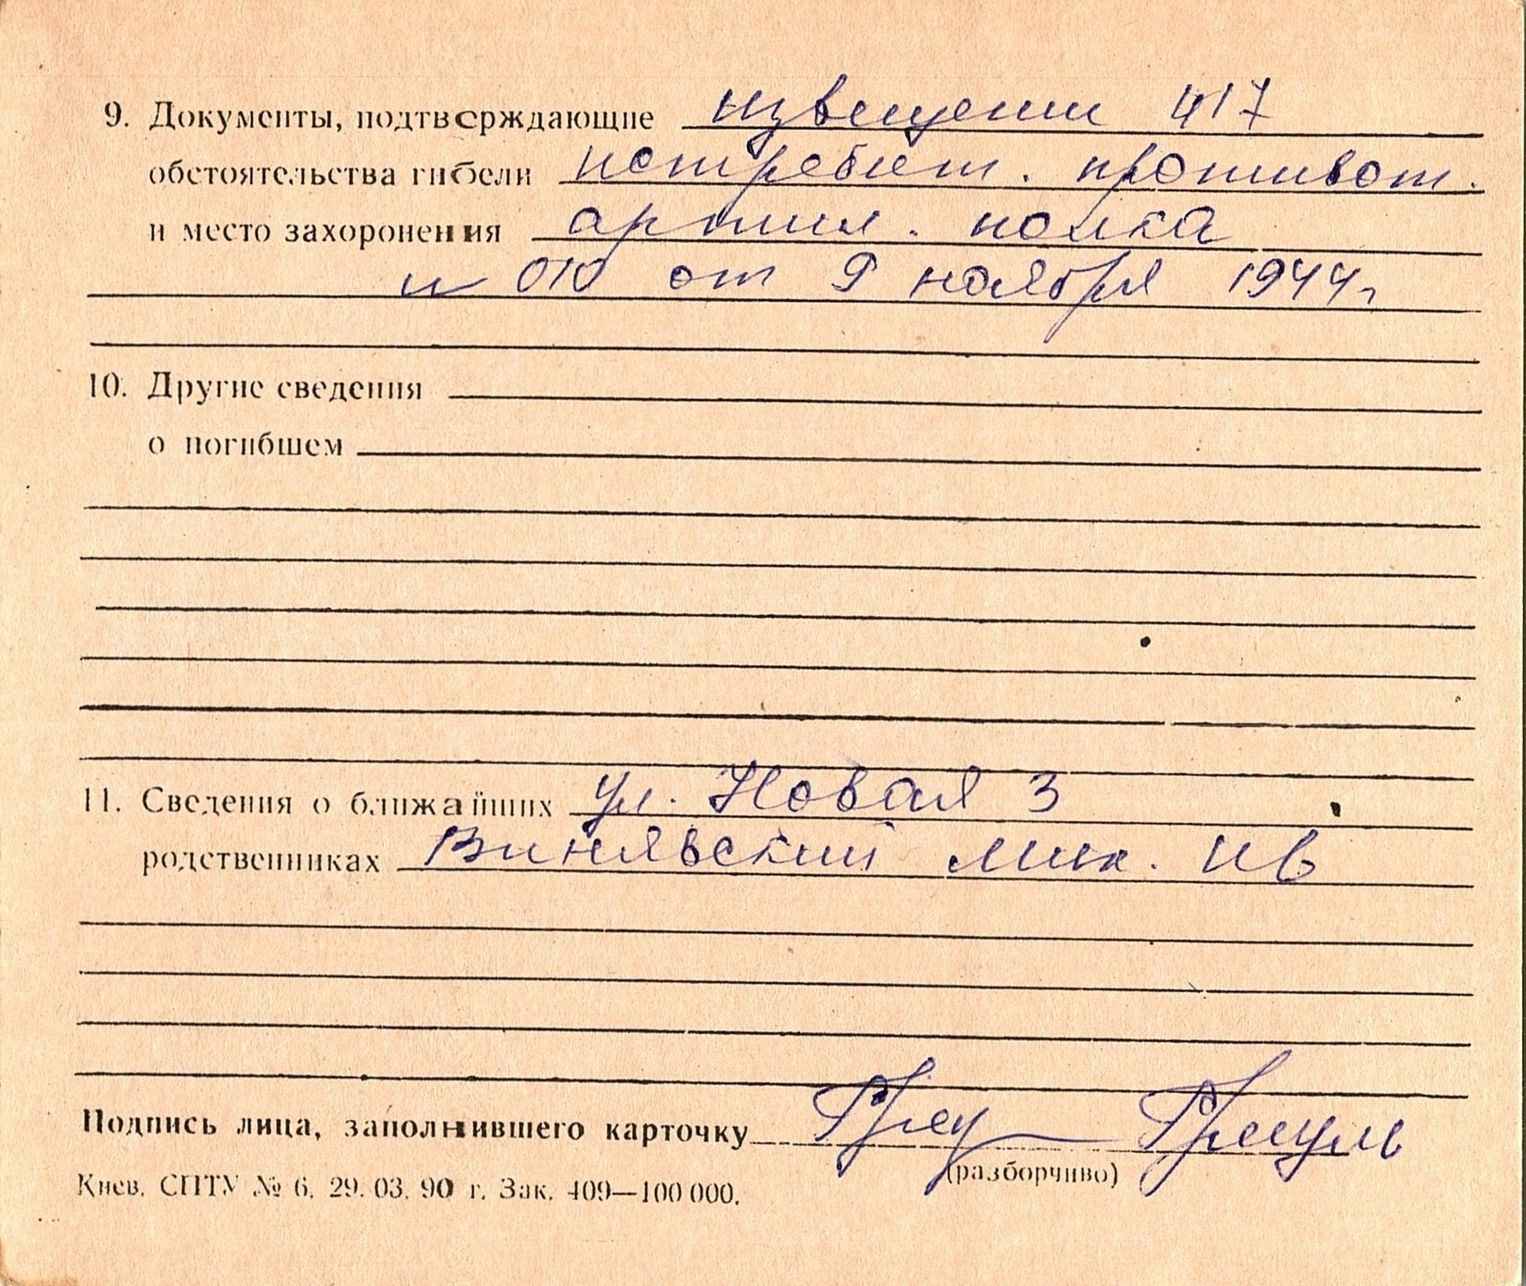 9. Документы, подтверждающие извещении 417
обстоятельства гибели истребит. противот.
и место захоронения артил. полка
н 010 от 9 ноября 1944г
10. Другие сведения
о погибшем
11. Сведения о ближайших ул. Новая 3
родственниках Винявский Мих. Ив
Подпись лица, заполнившего карточку
(разборчиво)
Киев. СПТУ № 6. 29. 03. 90 г. Зак. 409—100 000.